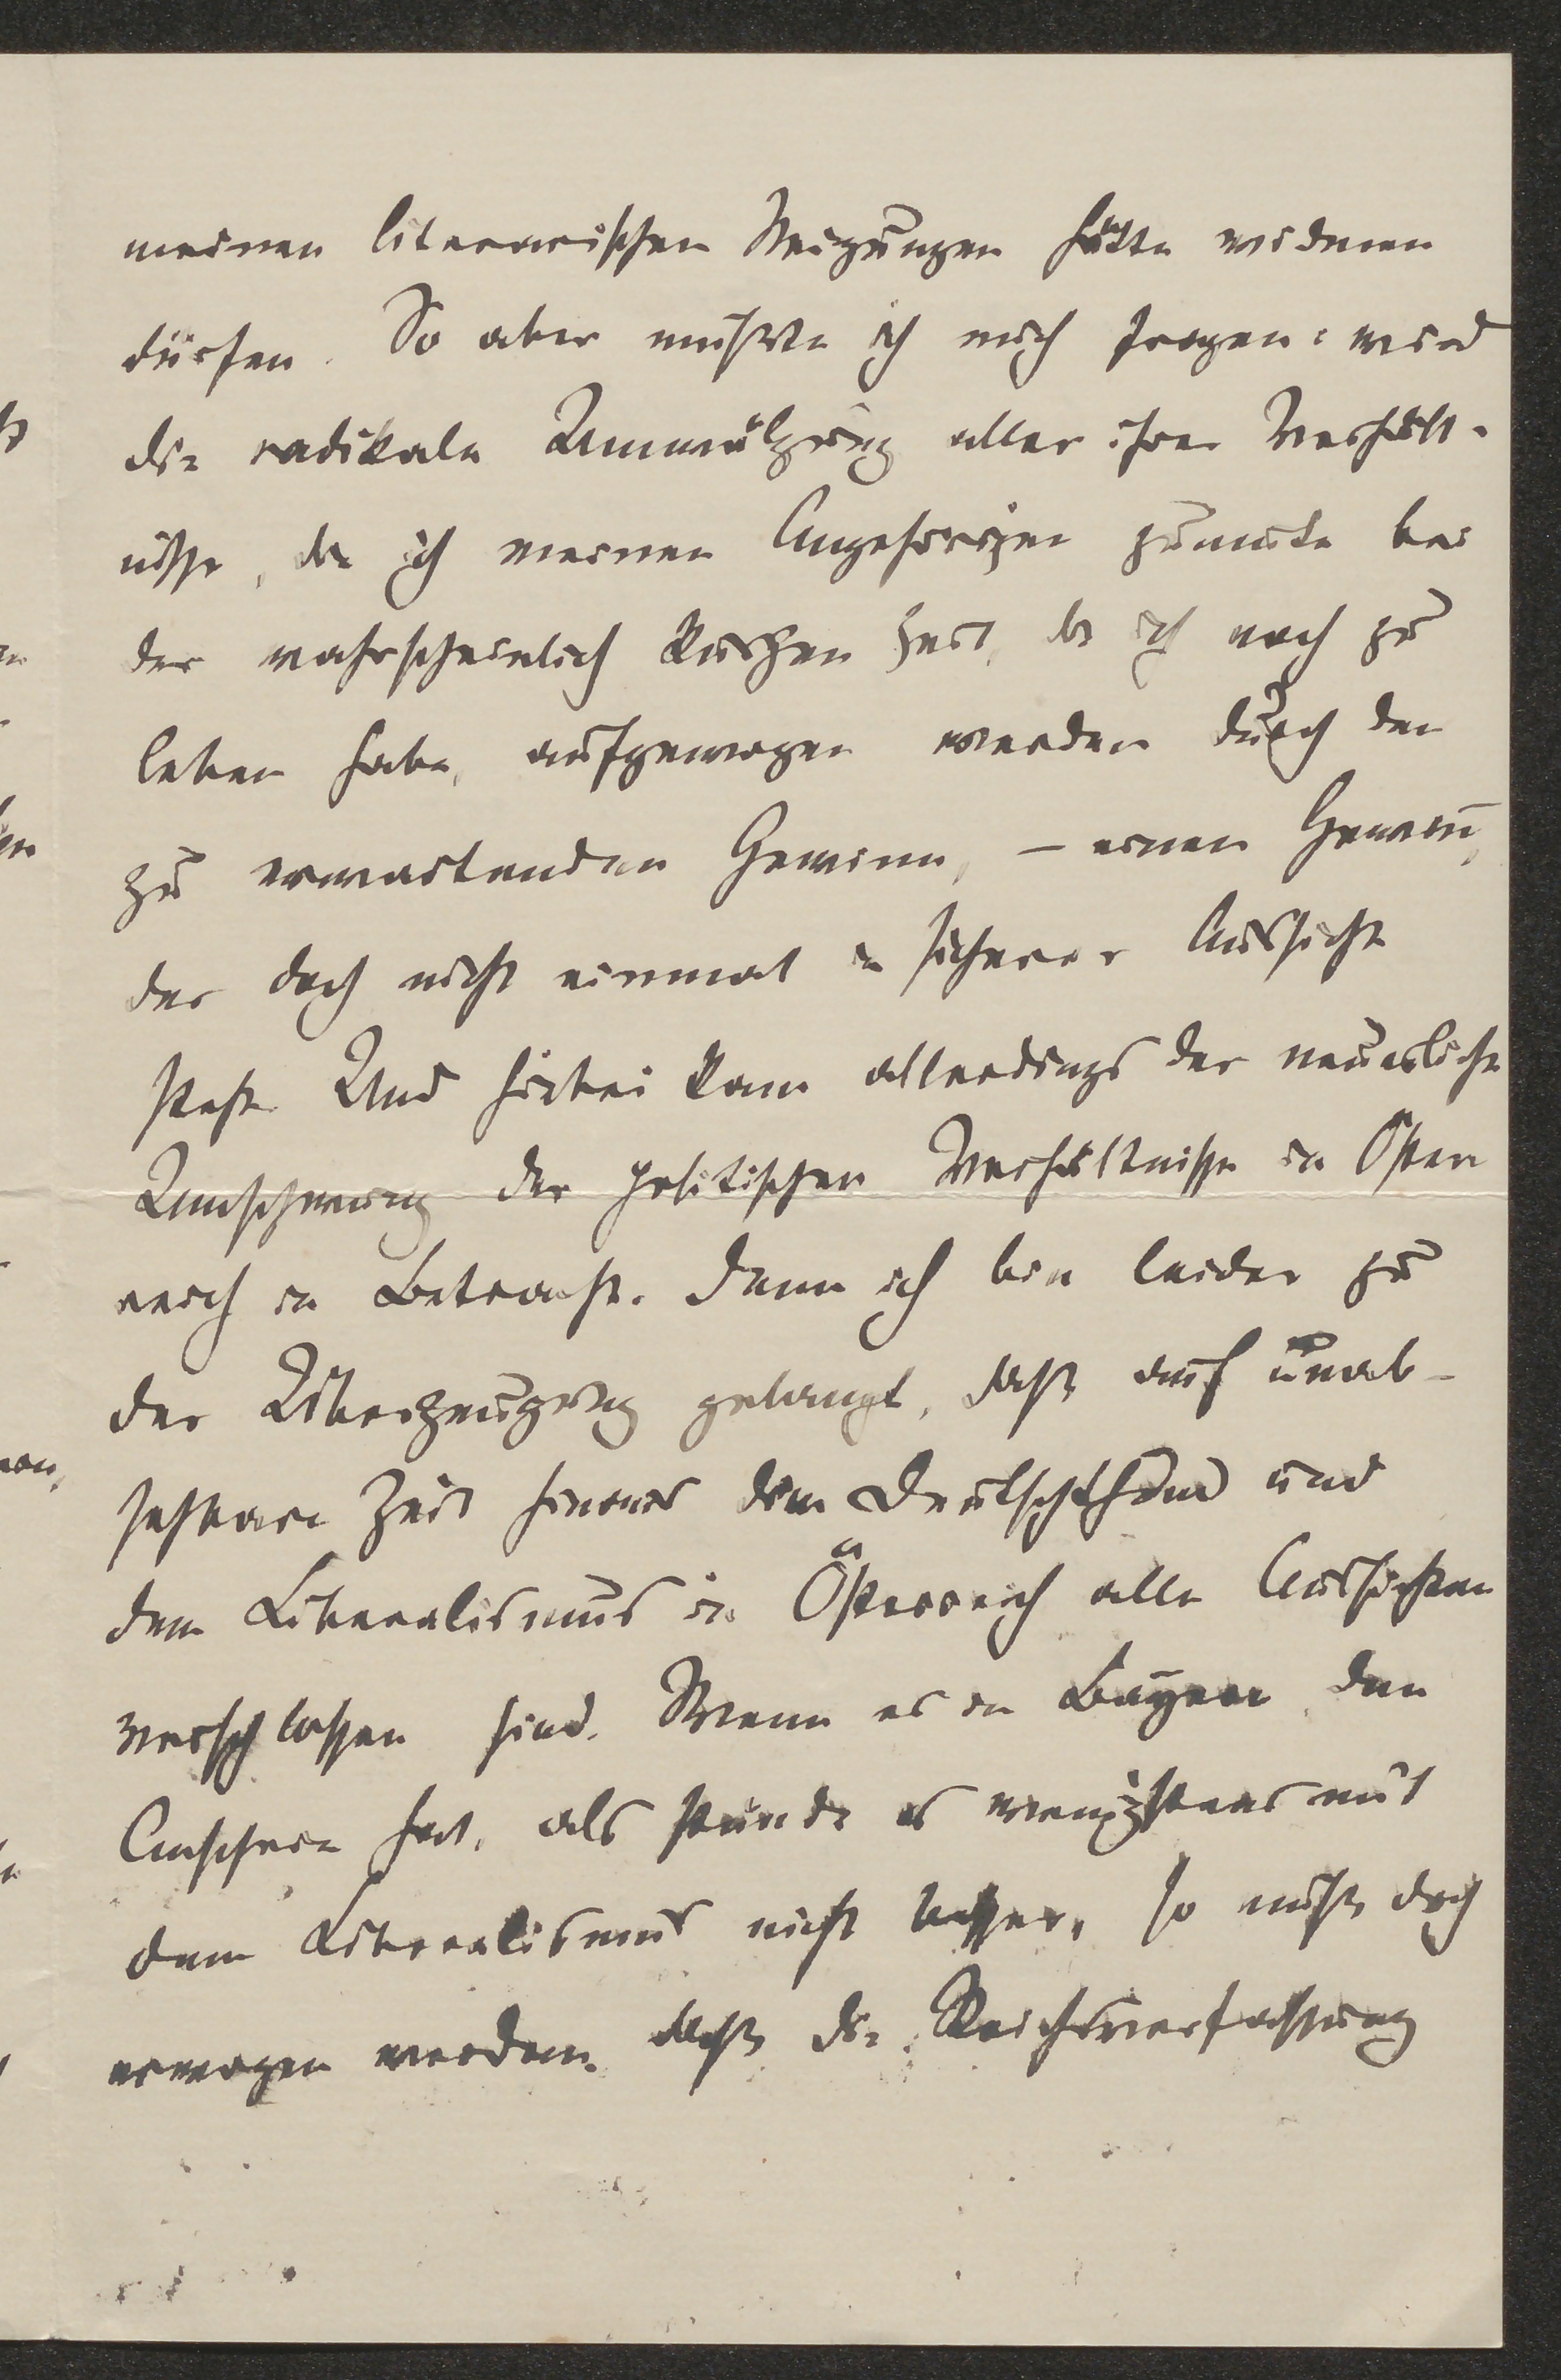 meinen literarischen Neigungen hätte widmen
dürfen. So aber mußte ich mich fragen: wird
die radikale Umwälzung aller ihrer Verhält-
nisse, die ich meinen Angehörigen zumute bei
der wahrscheinlich kurzen Zeit, die ich noch zu
leben habe, aufgewogen werden durch den
zu erwartenden Gewinn, – einen Gewinn,
der doch nicht einmal in sicherer Aussicht
steht. Und hiebei kam allerdings der neuerliche
Umschwung der politischen Verhältnisse in Öster
reich in Betracht. Denn ich bin leider zu
der Überzeugung gelangt, daß auf unab-
sehbare Zeit hinaus dem Deutschthum und
dem Liberalismus in Österreich alle Aussichten
verschlossen sind. Wenn es in Bayern den
Anschein hat, als stünde es wenigstens mit
dem Liberalismus nicht besser, so muß doch
erwogen werden, daß die Reichsverfassung